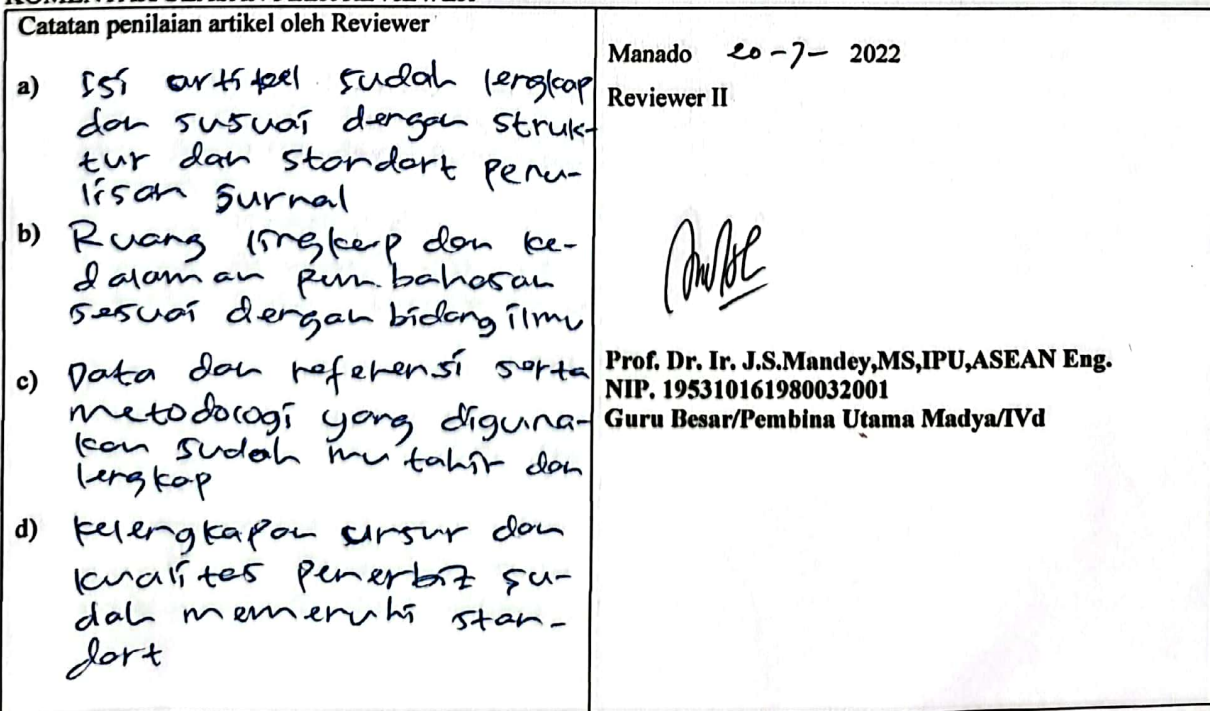 Catatan penilaian artikel oleh Reviewer
a) Isi artikel sudah lengkap
dan susuai dengan struk-
tur dan standart penu-
lisan jurnal
b) Ruang lingkup dan ke-
dalaman pembahasan
sesuai dengan bidang ilmu
c) Data dan referensi serta
metodologi yang diguna-
kan sudah mutahir dan
lengkap
d) kelengkapan unsur dan
kualitas penerbit su-
dah memenuhi stan-
dart
Manado 20-7- 2022
Reviewer II
Prof. Dr. Ir. J.S.Mandey,MS,IPU,ASEAN Eng.
NIP. 195310161980032001
Guru Besar/Pembina Utama Madya/IVd